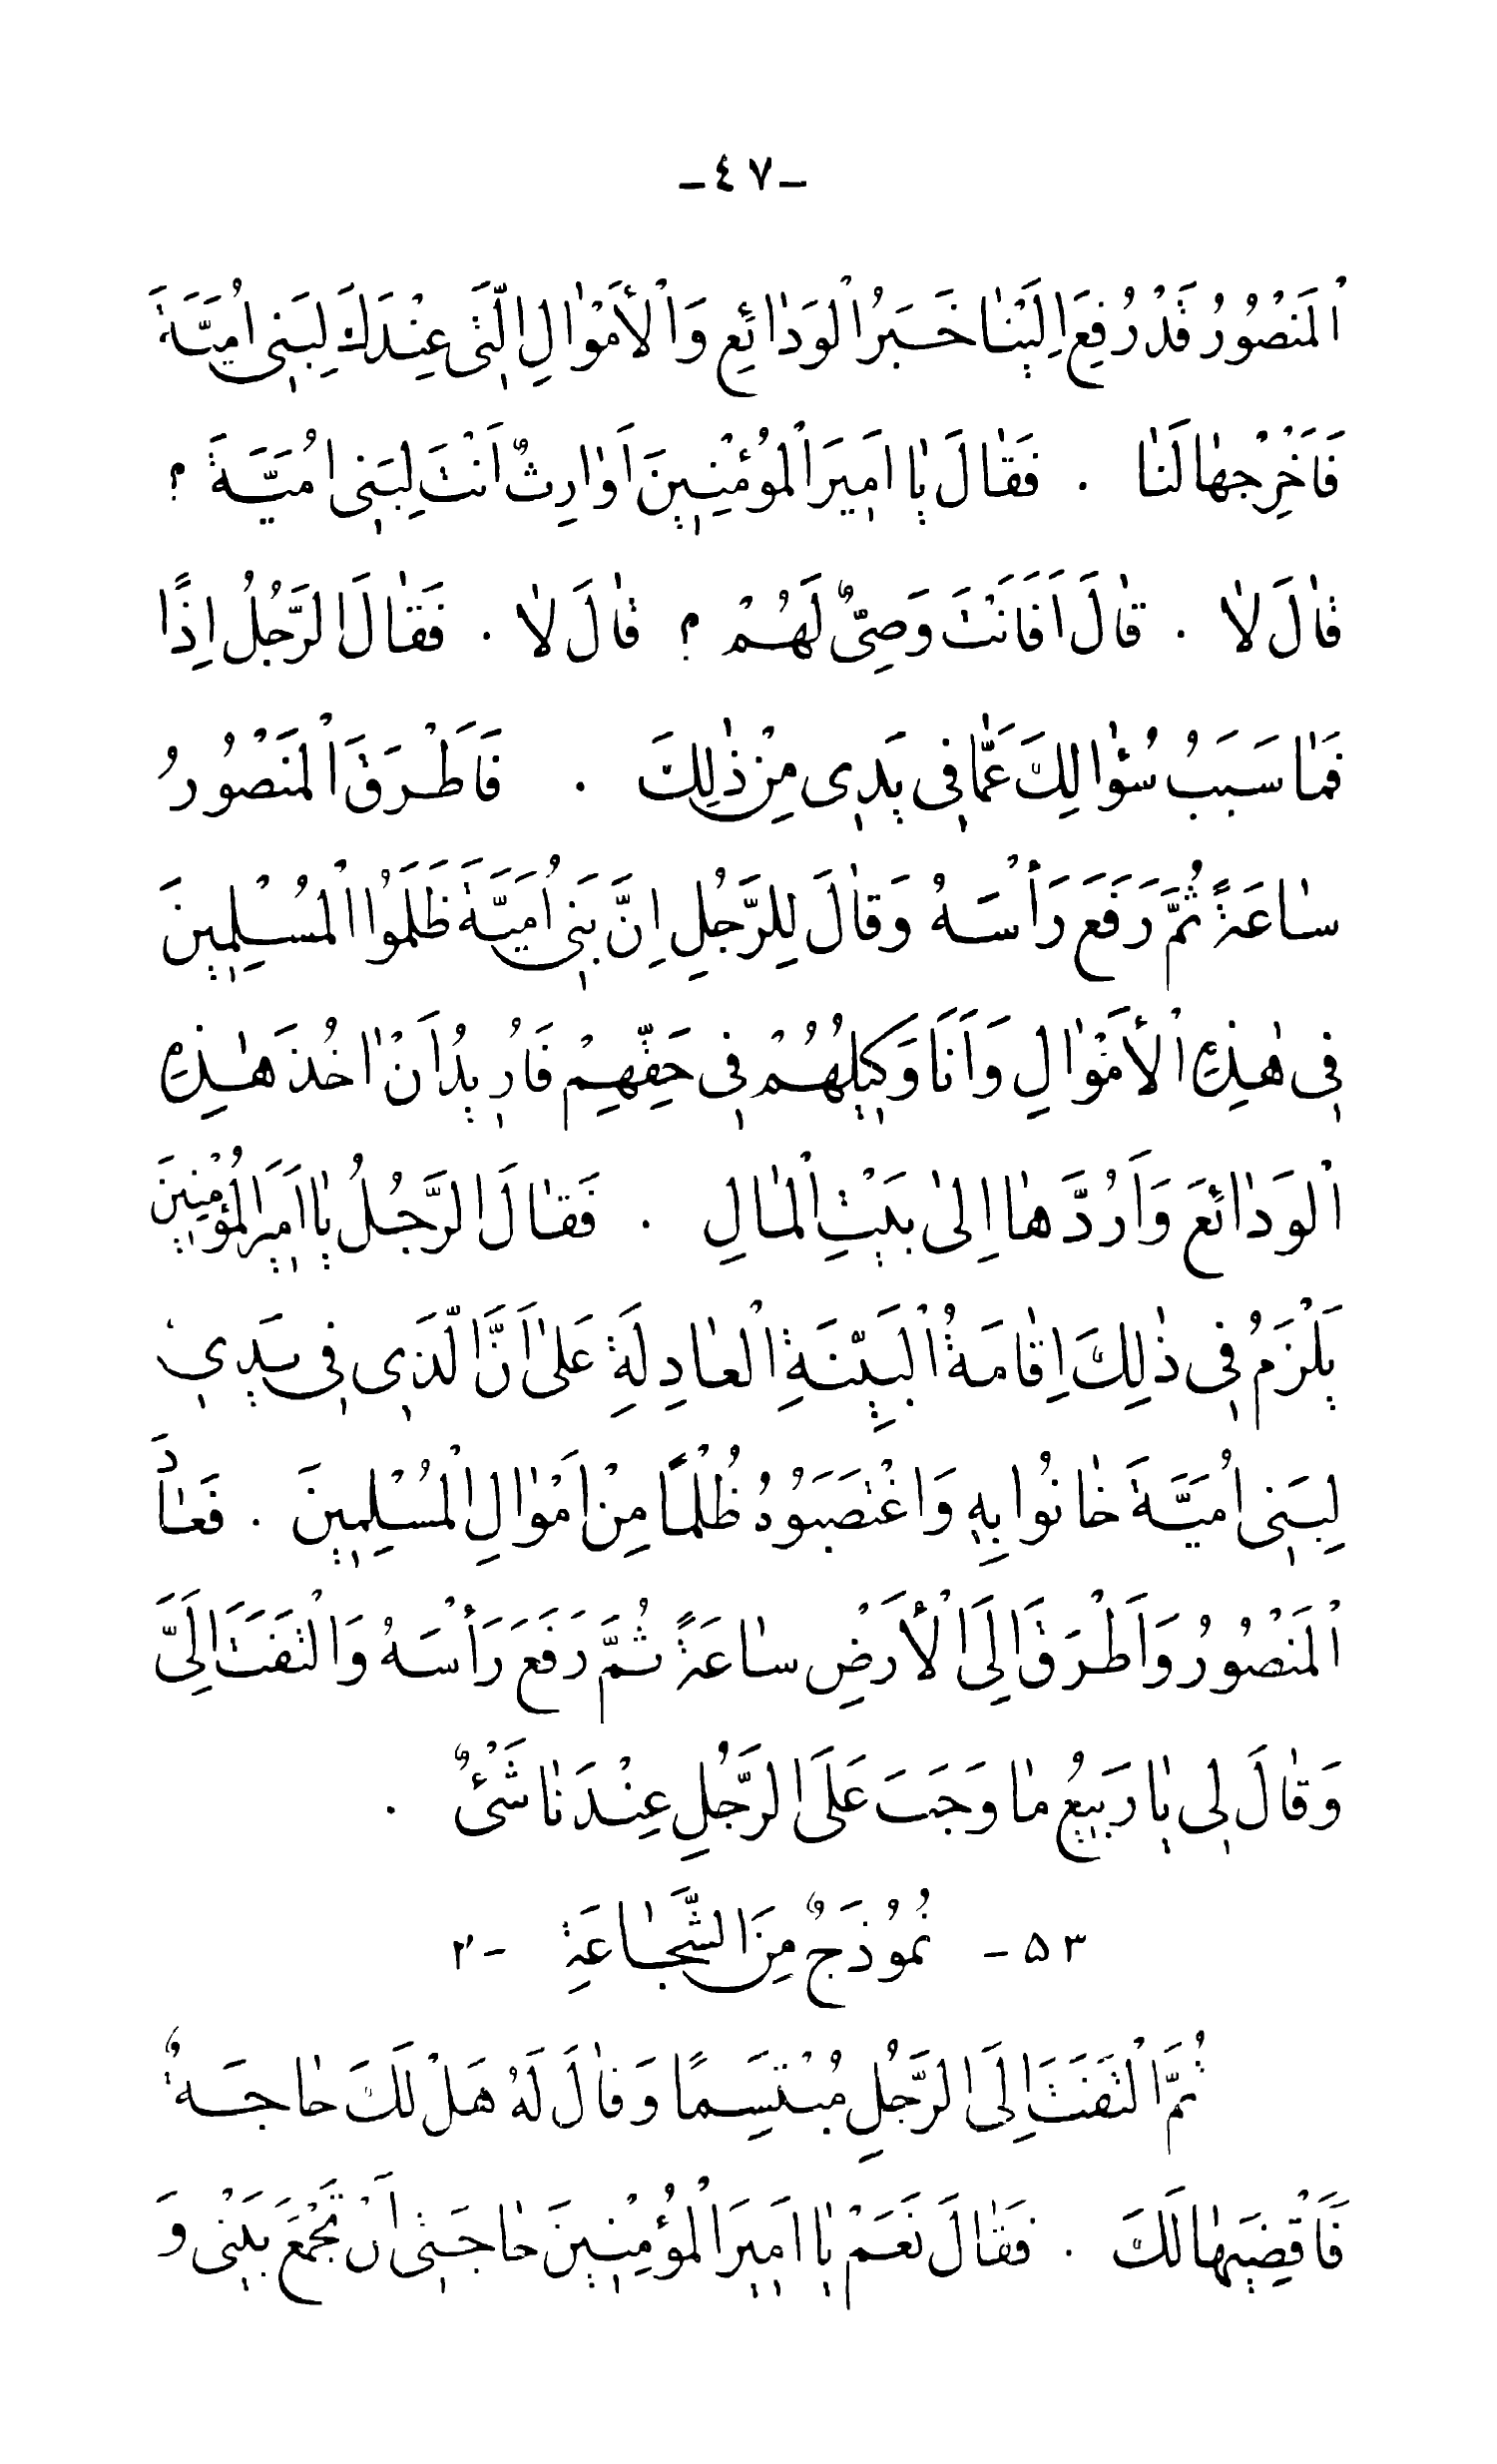 -٤٧-
اْلمَنْصُوُرُ قَدْ رُفِعَ اِلَيْنٰا خَبَرُ اْلوَدٰائِعِ وَ اْلأَمْوٰالِ الَّتٖى عِنْدَكَ لِبَنٖى اُمَيَّةَ
فَاَخْرِجْهٰا لَنٰا . فَقٰالَ يٰا اَمٖيرَ اْلمُؤْمِنٖينَ اَوٰارِثٌ اَنْتَ لِبَنٖى اُمَيَّةَ ؟
قٰالَ لاٰ . قٰالَ اَفَاَنْتَ وَصِىٌّ لَهُمْ ؟ قٰالَ لاٰ . فَقٰالَ الرَّجُلُ اِذًا
فَمٰا سَبَبُ سُؤٰالِكَ عَمّٰا فٖى يَدٖى مِنْ ذٰلِكَ . فَاَطْرَقَ اْلمَنْصُوُرُ
سٰاعَةً ثُمَّ رَفَعَ رَأْسَهُ وَقٰالَ لِلرَّجُلِ اِنَّ بَنٖى اُمَيَّةَ ظَلَمُوْا اْلمُسْلِمٖينَ
فٖى هٰذِهِ اْلأَمْوٰالِ وَ اَنَا وَكٖيلُهُمْ فٖى حَقِّهِمْ فَاُرٖيدُ اَنْ اٰخُذَ هٰذِهِ
اْلوَدٰائِعَ وَ اَرُدَّهٰا اِلىٰ بَيْتِ اْلمٰالِ . فَقٰالَ الرَّجُلُ يٰا اَمٖيرَ اْلمُؤْمِنٖينَ
يَلْزَمُ فٖى ذٰلِكَ اِقٰامَةُ اْلبَيِّنَةِ اْلعٰادِلَةِ عَلىٰ اَنَّ الَّذٖى فٖى يَدٖى
لِبَنٖى اُمَيَّةَ خٰانُوا بِهٖ وَ اغْتَصَبَوُهُ ظُلْمًا مِنْ اَمْوٰالِ اْلمُسْلِمٖينَ . فَعٰادَ
اْلمَنْصُوُرُ وَ اَطْرَقَ اِلَى اْلأَرْضِ سٰاعَةً ثُمَّ رَفَعَ رَأْسَهُ وَ الْتَفَتَ اِلَىَّ
وَقٰالَ لٖى يٰا رَبٖيعُ مٰا وَجَبَ عَلَى الرَّجُلِ عِنْدَنٰا شَئْىٌ .
۵۳- نُمُوُذَجٌ مِنَ الشَّجٰاعَةِ -۲
ثُمَّ الْتَفَتَ اِلَى الرَّجُلِ مُبْتَسِمًا وَقٰالَ لَهُ هَلْ لَكَ حٰاجَةٌ
فَاَقْضِيَهٰا لَكَ . فَقٰالَ نَعَمْ يٰا اَمٖيرَ اْلمُؤْمِنٖينَ حٰاجَتٖى اَنْ تَجْمَعَ بَيْنٖى وَ